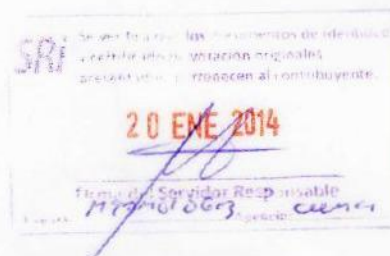 SRI
Se verifica que los documentos de identidad
y certificado de votación originales
presentados pertenecen al contribuyente.
20 ENE 2014
Firma del Servidor Responsable
Usuario: Agencia: cuenca